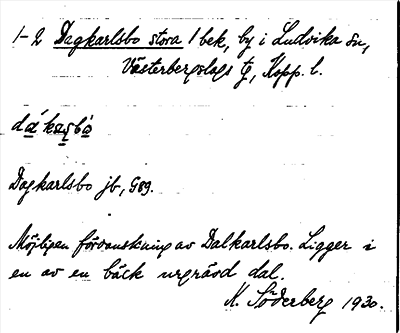 1-2 Dagkarlsbo stora 1 bek, by i Ludvika sn,
Västerbergslags tg, Kopp. l.
Dagkarlsbo jb, G89.
Möjligen förvanskning av Dalkarlsbo. Ligger i
en av en bäck urgrävd dal.
K. Söderberg 1930.